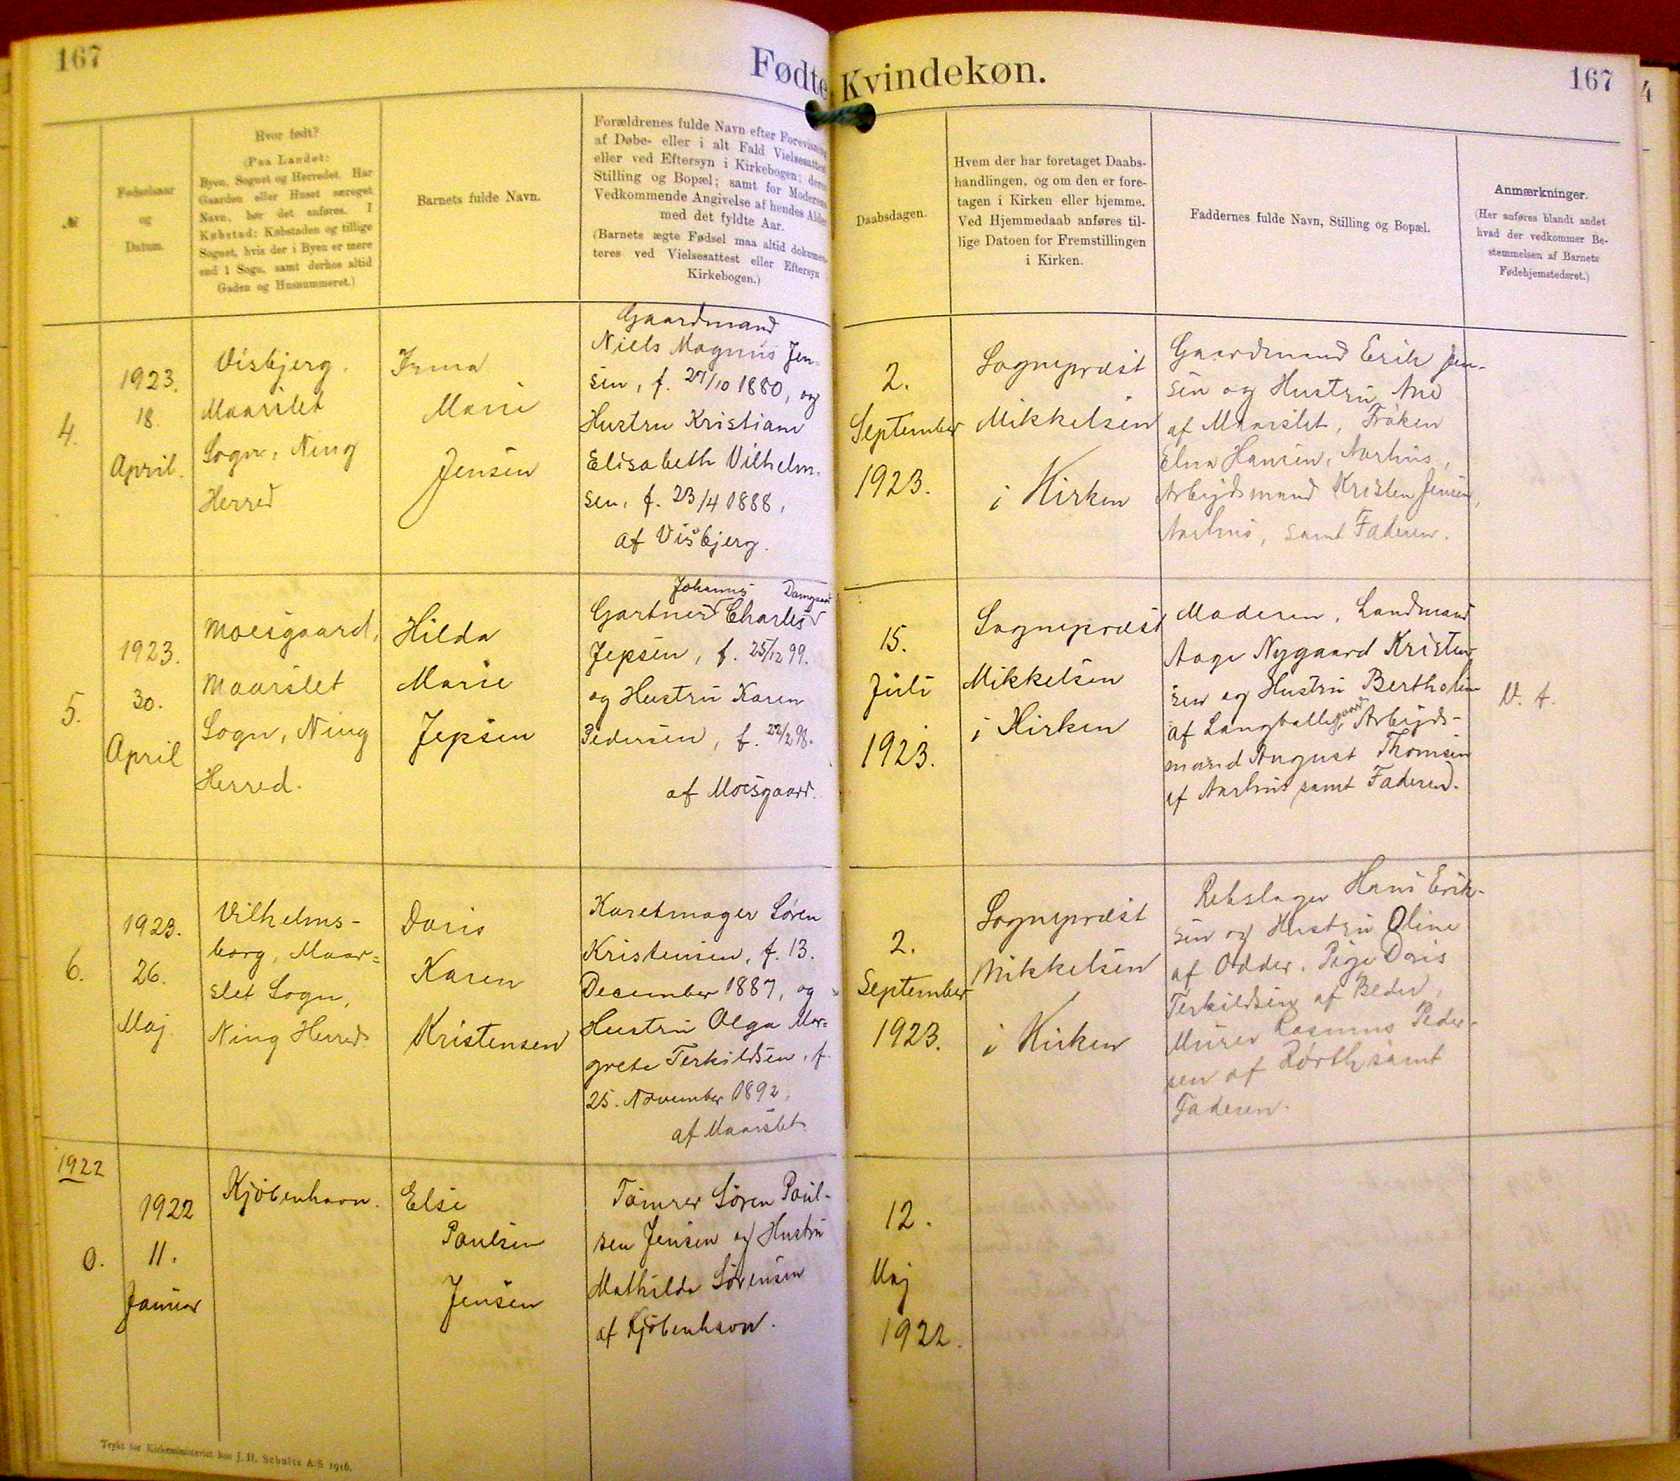 167
Fødte Kvindekøn.
167
4
№
Fødselsaar
og
Datum.
Hvor født?
(Paa Landet:
Byen, Sognet og Herredet. Har
Gaarden eller Huset særeget
Navn, bør det anføres. I
Købstad: Købstaden og tillige
Sognet, hvis der i Byen er mere
end 1 Sogn, samt derhos altid
Gaden og Husnummeret.)
Barnets fulde Navn.
Forældrenes fulde Navn efter Forevisning
af Døbe- eller i alt Fald Vielsesattest
eller ved Eftersyn i Kirkebogen; deres
Stilling og Bopæl; samt for Moderens
Vedkommende Angivelse af hendes Alder
med det fyldte Aar.
(Barnets ægte Fødsel maa altid dokumen-
teres ved Vielsesattest eller Eftersyn
Kirkebogen.)
Daabsdagen.
Hvem der har foretaget Daabs-
handlingen, og om den er fore-
tagen i Kirken eller hjemme.
Ved Hjemmedaab anføres til-
lige Datoen for Fremstillingen
i Kirken.
Faddernes fulde Navn, Stilling og Bopæl.
Anmærkninger.
(Her anføres blandt andet
hvad der vedkommer Be-
stemmelsen af Barnets
Fødehjemstedsret.)
4.
1923.
18.
April.
Visbjerg.
Maarslet
Sogn, Ning
Herred
Irma
Marie
Jensen
Gaardmand
Niels Magnus Jen-
sen, f. 27/10 1880, og
Hustru Kristiane
Elisabeth Vilhelm-
sen, f. 23/4 1888,
af Visbjerg.
2.
September
1923.
Sognepræst
Mikkelsen
i Kirken
Gaardmand Erik Jen-
sen og Hustru Ane
af Maarslet, Frøken
Elna Hansen, Aarhus,
Arbejdsmand Kristen Jensen,
Aarhus, samt Faderen.
5.
1923.
30.
April
Moesgaard,
Maarslet
Sogn, Ning
Herred.
Hilda
Marie
Jepsen
Johannes Damgaard
Gartner Charles
Jepsen, f. 25/12 99.
og Hustru Karen
Pedersen, f. 22/2 98.
af Moesgaard.
15.
Juli
1923.
Sognepræst
Mikkelsen
i Kirken
Moderen, Landmand
Aage Nygaard Kristen-
sen og Hustru Bertholine
af Langballegaard, Arbejds-
mand August Thomsen
af Aarhus samt Faderen.
V. A.
6.
1923.
26.
Maj
Vilhelms-
borg, Maar=
slet Sogn,
Ning Herred.
Doris
Karen
Kristensen
Karetmager Søren
Kristensen, f. 13.
December 1887, og
Hustru Olga Mar-
grete Terkildsen, f.
25. November 1892,
af Maarslet.
2.
September
1923.
Sognepræst
Mikkelsen
i Kirken
Rebslager Hans Erik-
sen og Hustru Oline
af Odder. Pige Doris
Terkildsen af Beder,
Murer Rasmus Peder-
sen af Rørth samt
Faderen.
1922
0.
1922
11.
Januar
Kjøbenhavn.
Else
Poulsen
Jensen
Tømrer Søren Poul-
sen Jensen og Hustru
Mathilde Sørensen
af Kjøbenhavn.
12.
Maj
1922.
Trykt for Kirkeministeriet hos J. H. Schultz A/S 1916.